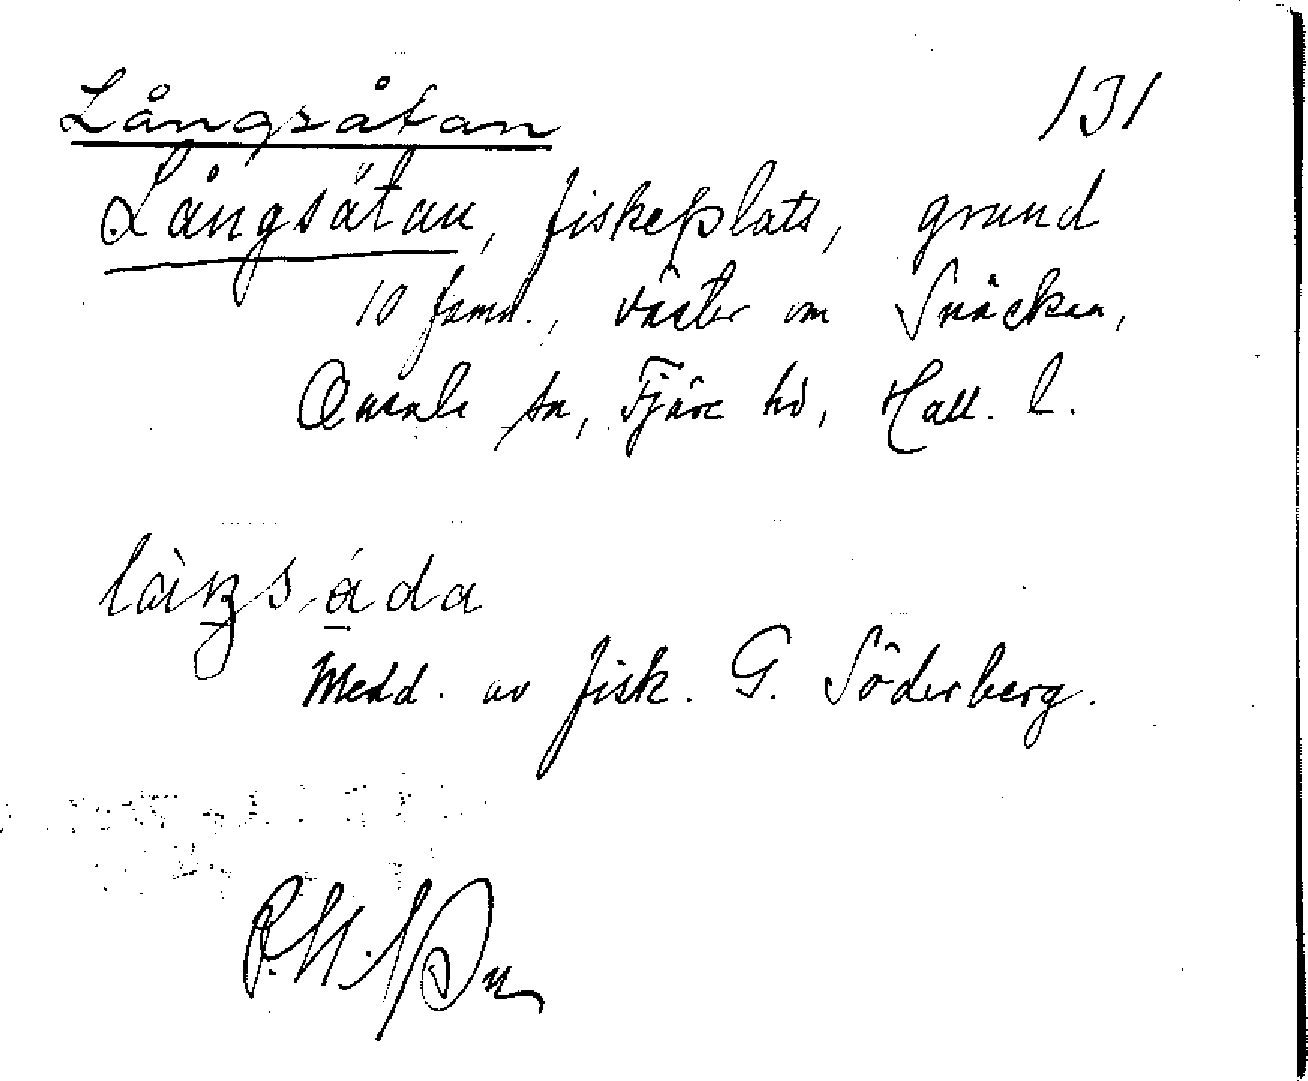 Långsåtan 131
Långsåtan, fiskeplats, grund
10 famn., väster om Snäckan,
Onsala sn, Fjäre hd, Hall. l.
Medd. av fisk. G. Söderberg.